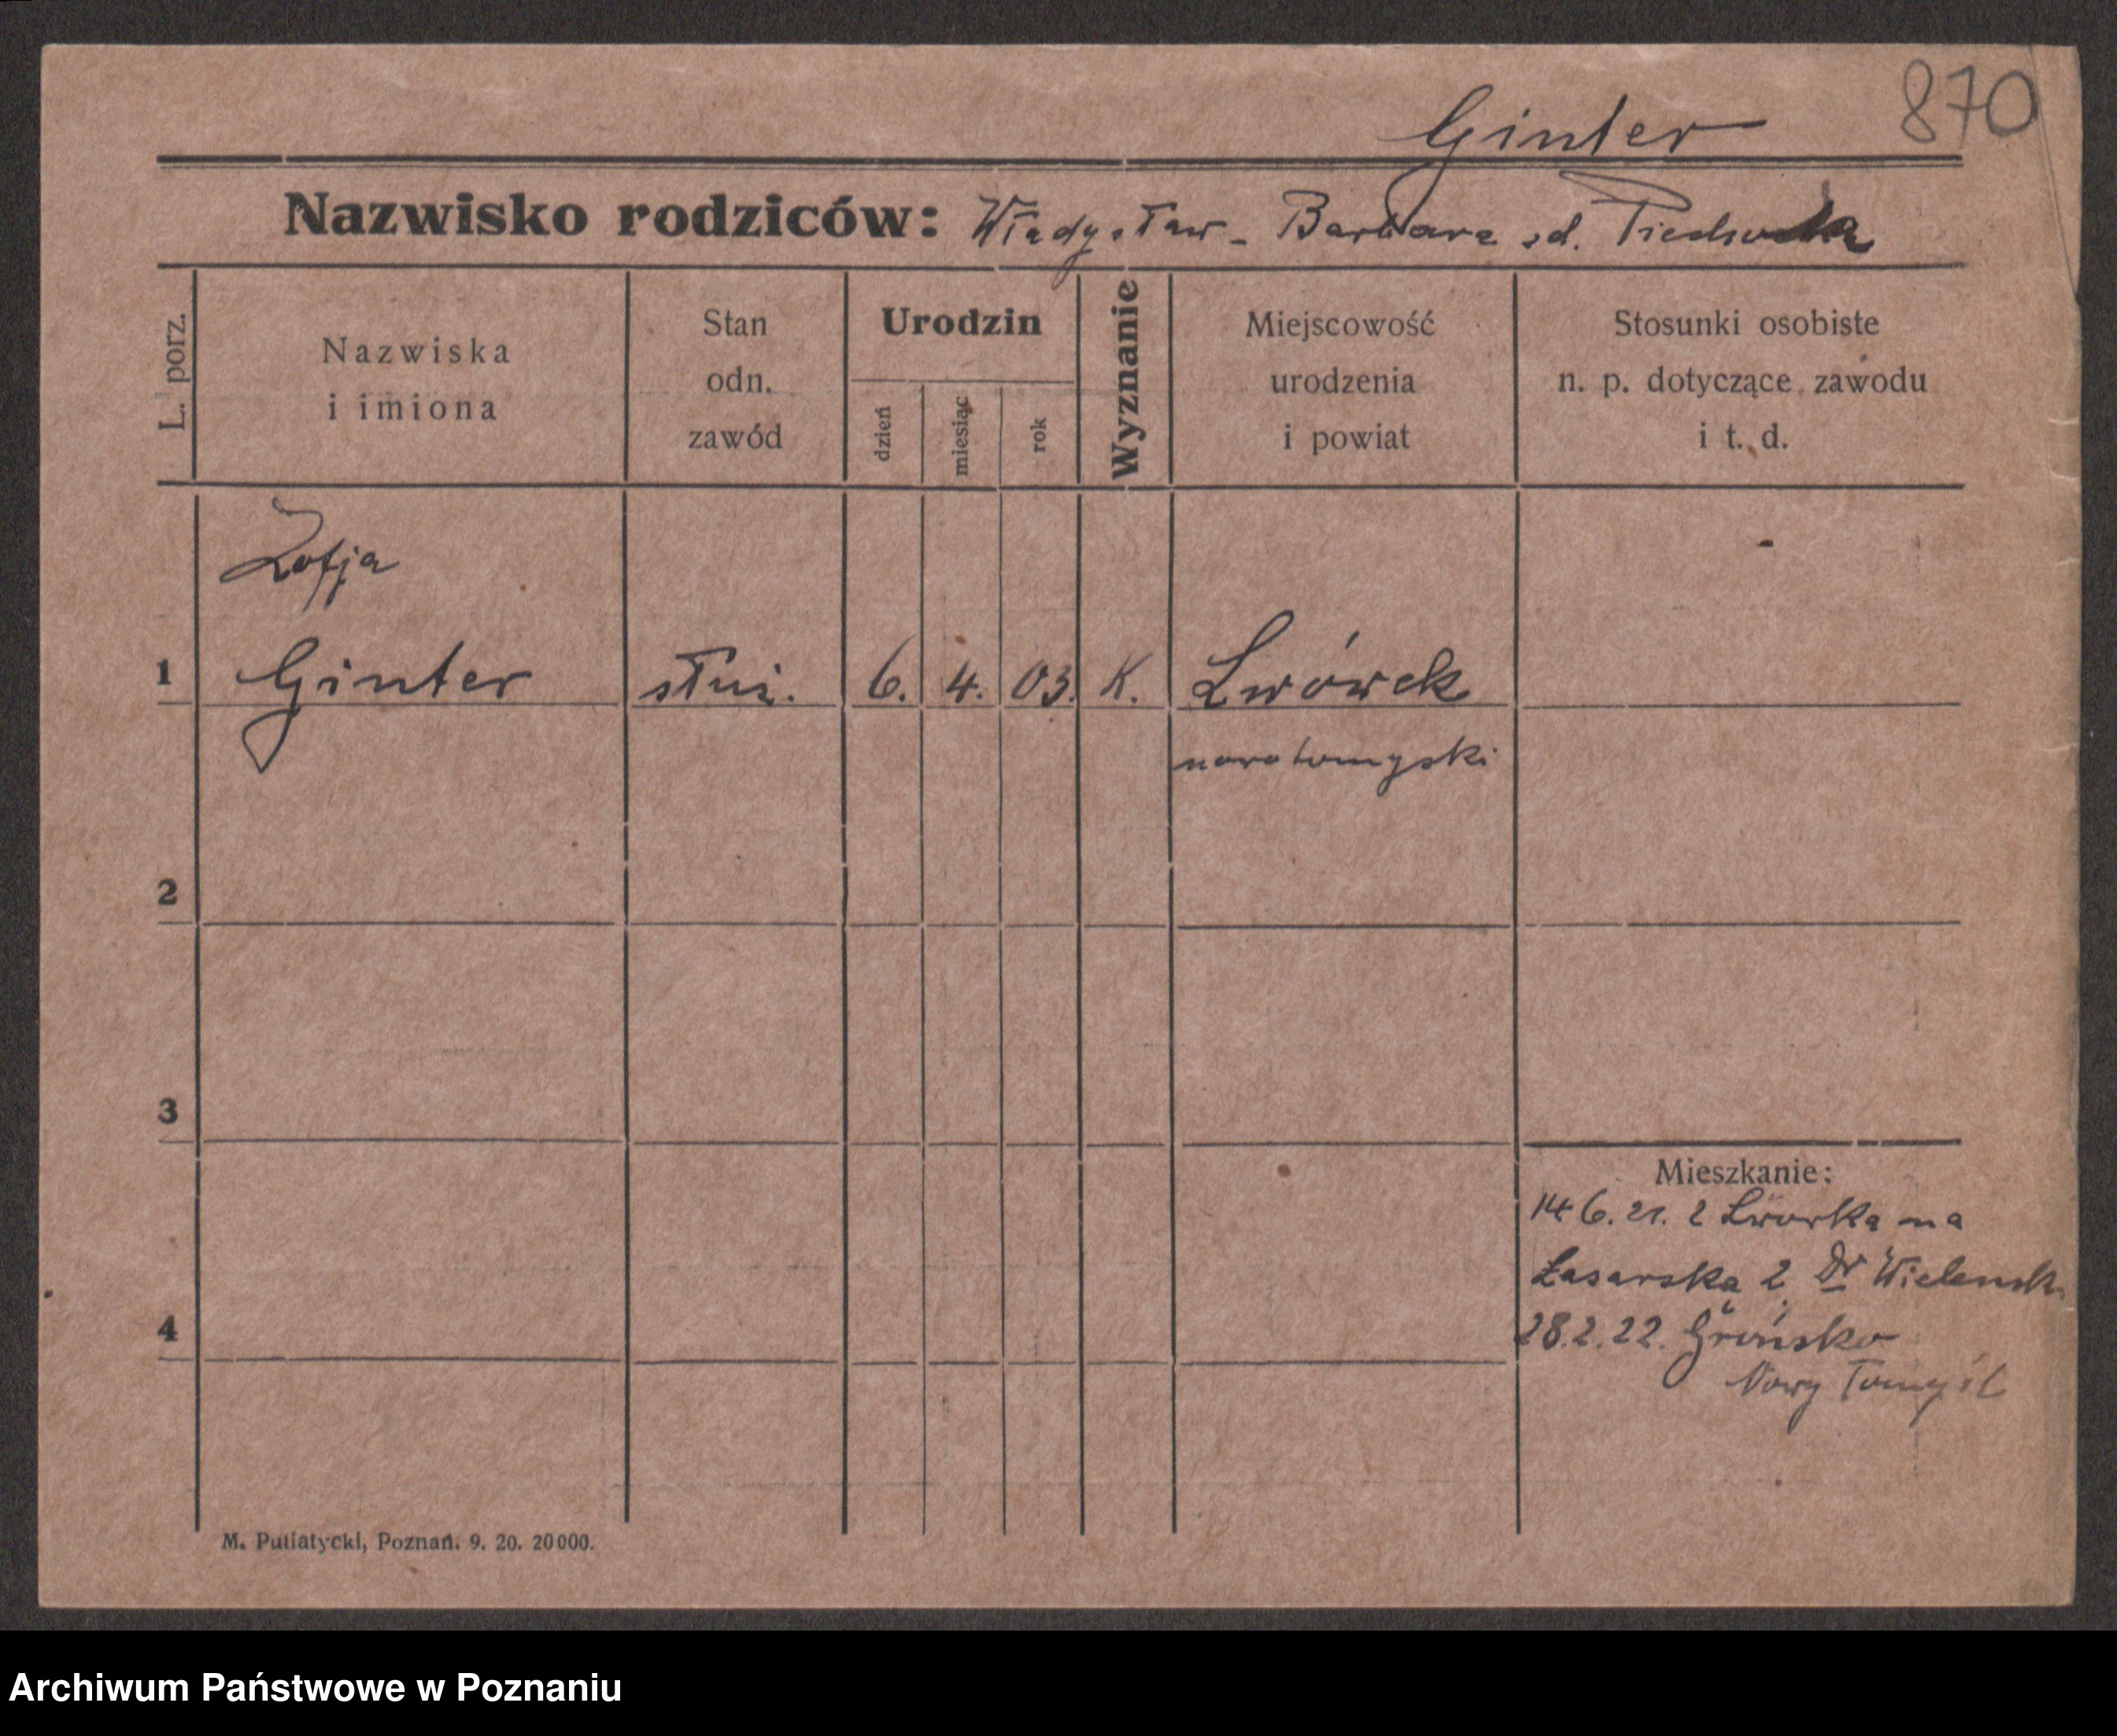 870
Ginter
Nazwisko rodziców: Władysław - Barbara
L. porz.
Nazwiska
i imiona
Stan
odn.
zawód
Urodzin
dzień
miesiąc
rok
Wyznanie
Miejscowość
urodzenia
i powiat
Stosunki osobiste
n. p. dotyczące zawodu
i t. d.
Zofja
1 Ginter służ. 6. 4. 03. K. Lwówek
nowotomyski
2
3
Mieszkanie:
14 6. 21. z Lwówka na
Łasarska 2 Dr
4
28.2.22. Grońsko
Nowy Tomyśl
M. Putiatycki, Poznań. 9. 20. 20000.
Archiwum Państwowe w Poznaniu